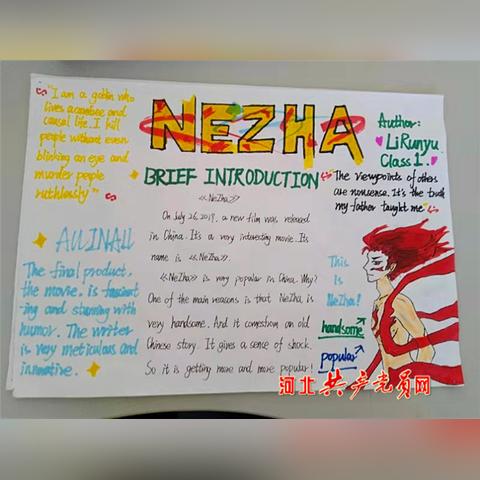 "I am a goblin who
lives acarefree and
causal life. I kill
people without even
blinking an eye and
murder people
ruthlessly"
NEZHA
Author:
LiRunyu
Class 1.
BRIEF INTRODUCTION
The viewpoints of others
are nonsense. It's the truth
my father taught me
<<NeZha>>
On July 26, 2019, a new film was released
in China. It's a very interesting movie. Its
name is <<NeZha>>.
<<NeZha>> is very popular in China. Why?
One of the main reasons is that NeZha is
very handsome. And it comesfrom an old
Chinese story. It gives a sense of shock.
So it is getting more and more popular!
ALLINALL
The final product,
the movie, is fascinat
-ing and stunning with
humor. The writer
is very meticulous and
innovative.
This
is
NeZha!
handsome
popular
河北共产党员网